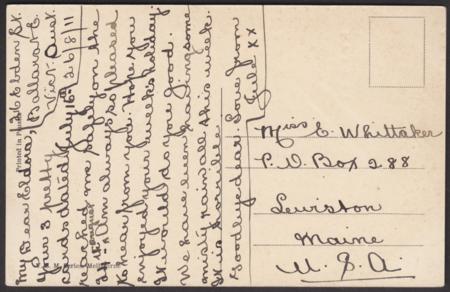 136 Ebden St.
Ballarat E.
Vict. Aust.
26/8/11
My Dear Eldena,
Your 3 pretty
cards dated July 16-
reached me safely on the
Am always so pleased
to hear from you. Hope you
enjoyed your week's holiday
It would do you good.
We have been having some
misty rain all this week.
It is horrible
Goodbye dear Love from
Jule xx
Miss E. Whittaker
P. O Box 288
Lewiston
Maine
U. S. A.
Printed in